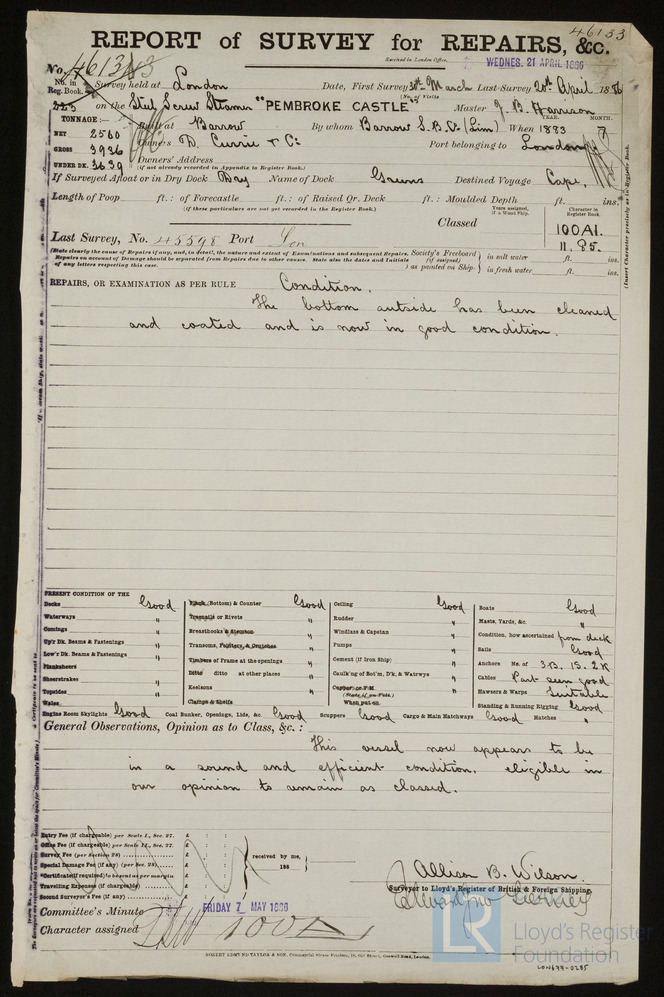 46133
REPORT of SURVEY for REPAIRS, &c.
Received in London Office, WEDNES. 21 APRIL 1886
No. 46133
No. in Reg. Book. Survey held at London Date, First Survey 30th March Last Survey 20th April 1886
(No. of Visits
225 on the Steel Screw Steamer "PEMBROKE CASTLE" Master J. B. Harrison
TONNAGE:— Built at Barrow By whom Barrow S.B. Co (Lim) When 1883 7
YEAR. MONTH.
NET 2560
GROSS 3936 Owners D. Currie & Co Port belonging to London
UNDER DK. 3639 Owners' Address
(If not already recorded in Appendix to Register Book.)
If Surveyed Afloat or in Dry Dock Dry Name of Dock Destined Voyage Cape,
Length of Poop ft.: of Forecastle ft.: of Raised Qr. Deck ft.: Moulded Depth ft. ins.
(If these particulars are not yet recorded in the Register Book.)
Years assigned, if a Wood Ship. Character in Register Book.
Classed 100A1.
11.85.
Last Survey, No. 45598 Port Lon
(State clearly the cause of Repairs if any, and, in detail, the nature and extent of Examinations and subsequent Repairs.
Repairs on account of Damage should be separated from Repairs due to other causes. State also the dates and Initials
of any letters respecting this case.
Society's Freeboard (if assigned) as painted on Ship. in salt water ft. ins.
in fresh water ft. ins.
(Insert Character precisely as in Register Book.
REPAIRS, OR EXAMINATION AS PER RULE Condition.
The bottom outside has been cleaned
and coated and is now in good condition.
PRESENT CONDITION OF THE
Decks Good
Waterways "
Comings "
Up'r Dk. Beams & Fastenings "
Low'r Dk. Beams & Fastenings "
Planksheers
Sheerstrakes "
Topsides "
Wales
Plank, (Bottom) & Counter Good
Treenails or Rivets "
Breasthooks & Stemson "
Transoms, Pointers, & Crutches "
Timbers of Frame at the openings "
Ditto ditto at other places "
Keelsons "
Clamps & Shelfs
Ceiling Good
Rudder "
Windlass & Capstan "
Pumps "
Cement (if Iron Ship) "
Caulk'ng of Bot'm, D'k, & Watrwys "
Copper or F.M.
(State if on Felt.)
When put on.
Boats Good
Masts, Yards, &c. "
Condition, how ascertained from deck
Sails Good
Anchors No. of 3B. 1S. 2K
Cables Part seen good
Hawsers & Warps Suitable
Standing & Running Rigging Good
Engine Room Skylights Good Coal Bunker, Openings, Lids, &c. Good Scuppers Good Cargo & Main Hatchways Good Hatches "
General Observations, Opinion as to Class, &c. :
This vessel now appears to be
in a sound and efficient condition, eligible in
our opinion to remain as classed.
Entry Fee (if chargeable) per Scale I., Sec. 27. £ : :
Office Fee (if chargeable) per Scale II., Sec. 27. £ : :
Survey Fee (per Section 28) £ : :
Special Damage Fee (if any) (per Sec. 28) £ : :
*Certificate (if required) to be sent as per margin £ : :
Travelling Expenses (if chargeable) £ : :
Second Surveyor's Fee (if any) £ : :
received by me,
188
Allison B. Wilson.
Surveyor to Lloyd's Register of British & Foreign Shipping.
Committee's Minute FRIDAY 7 MAY 1886
Character assigned 100A1
ROBERT EDMUND TAYLOR & SON, Commercial Steam Printers, 19, Old Street, Goswell Road, London.
LR
Lloyd's Register
Foundation
LON673-0285